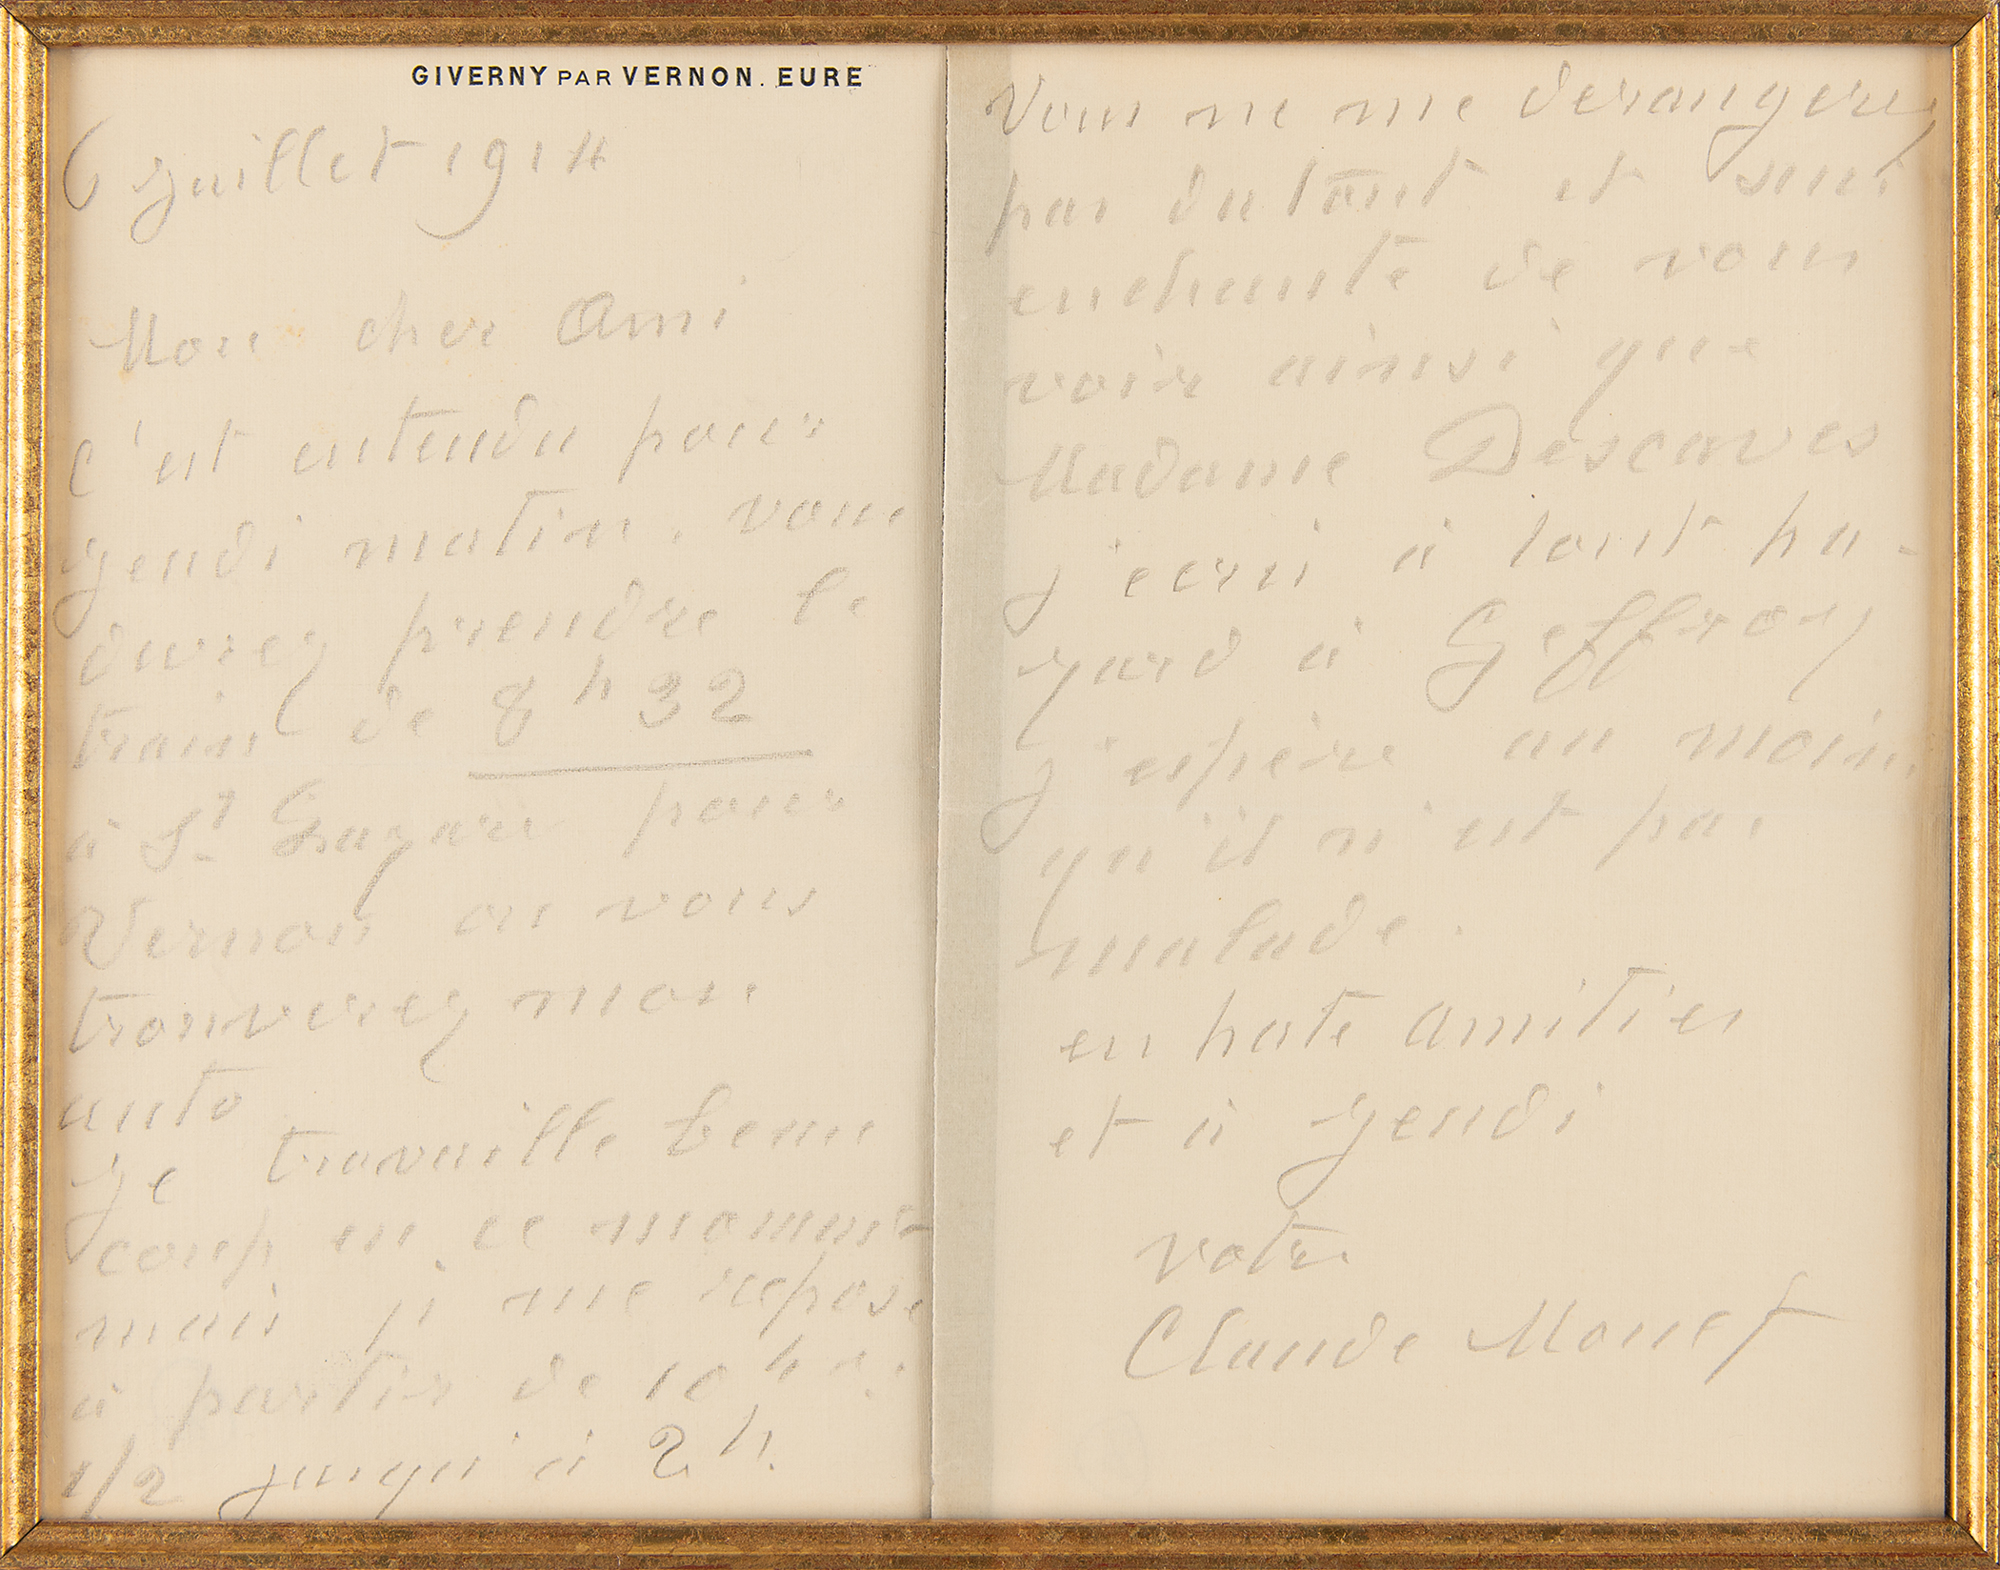 GIVERNY PAR VERNON. EURE
6 juillet 1914
Mon cher Ami
C'est entendu pour
jeudi matin, vous
devrez prendre le
train de 8h32
à St Lazare pour
Vernon où vous
trouverez mon
auto
Je travaille beau
coup en ce moment
mais je me repose
à partir de 10 hres
1/2 jusqu'à 2h.
Vous ne me derangerez
pas dutout et suis
enchanté de vous
voir ainsi que
Madame Descaves
j'ecris à tout ha-
zard à Geffroy
j'espère au moins
qu'il n'est pas
malade.
en hate amities
et à jeudi
votre
Claude Monet